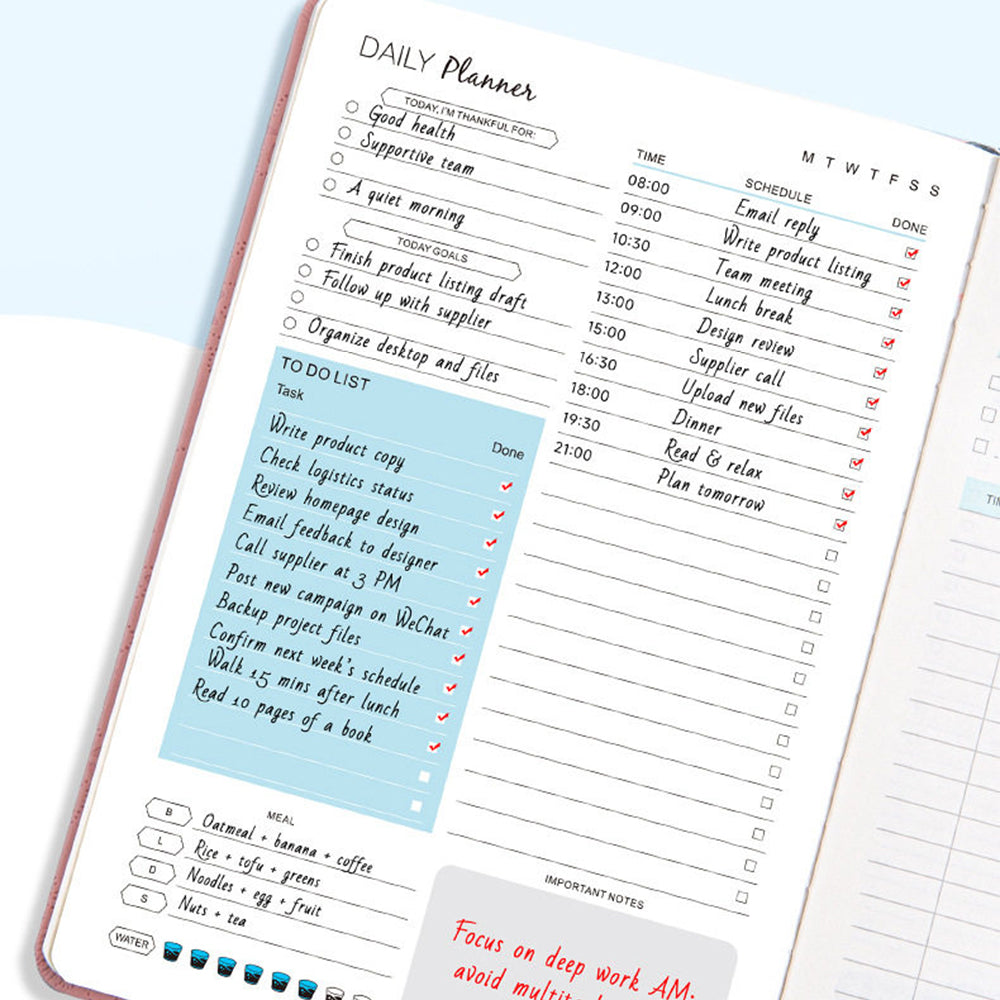 DAILY Planner
TODAY, I'M THANKFUL FOR:
Good health
Supportive team
A quiet morning
TODAY GOALS
Finish product listing draft
Follow up with supplier
Organize desktop and files
TO DO LIST
Task Done
Write product copy
Check logistics status
Review homepage design
Email feedback to designer
Call supplier at 3 PM
Post new campaign on WeChat
Backup project files
Confirm next week's schedule
Walk 15 mins after lunch
Read 10 pages of a book
MEAL
B Oatmeal + banana + coffee
L Rice + tofu + greens
D Noodles + egg + fruit
S Nuts + tea
WATER
M T W T F S S
TIME SCHEDULE DONE
08:00 Email reply
09:00 Write product listing
10:30 Team meeting
12:00 Lunch break
13:00 Design review
15:00 Supplier call
16:30 Upload new files
18:00 Dinner
19:30 Read & relax
21:00 Plan tomorrow
IMPORTANT NOTES
Focus on deep work AM.
avoid